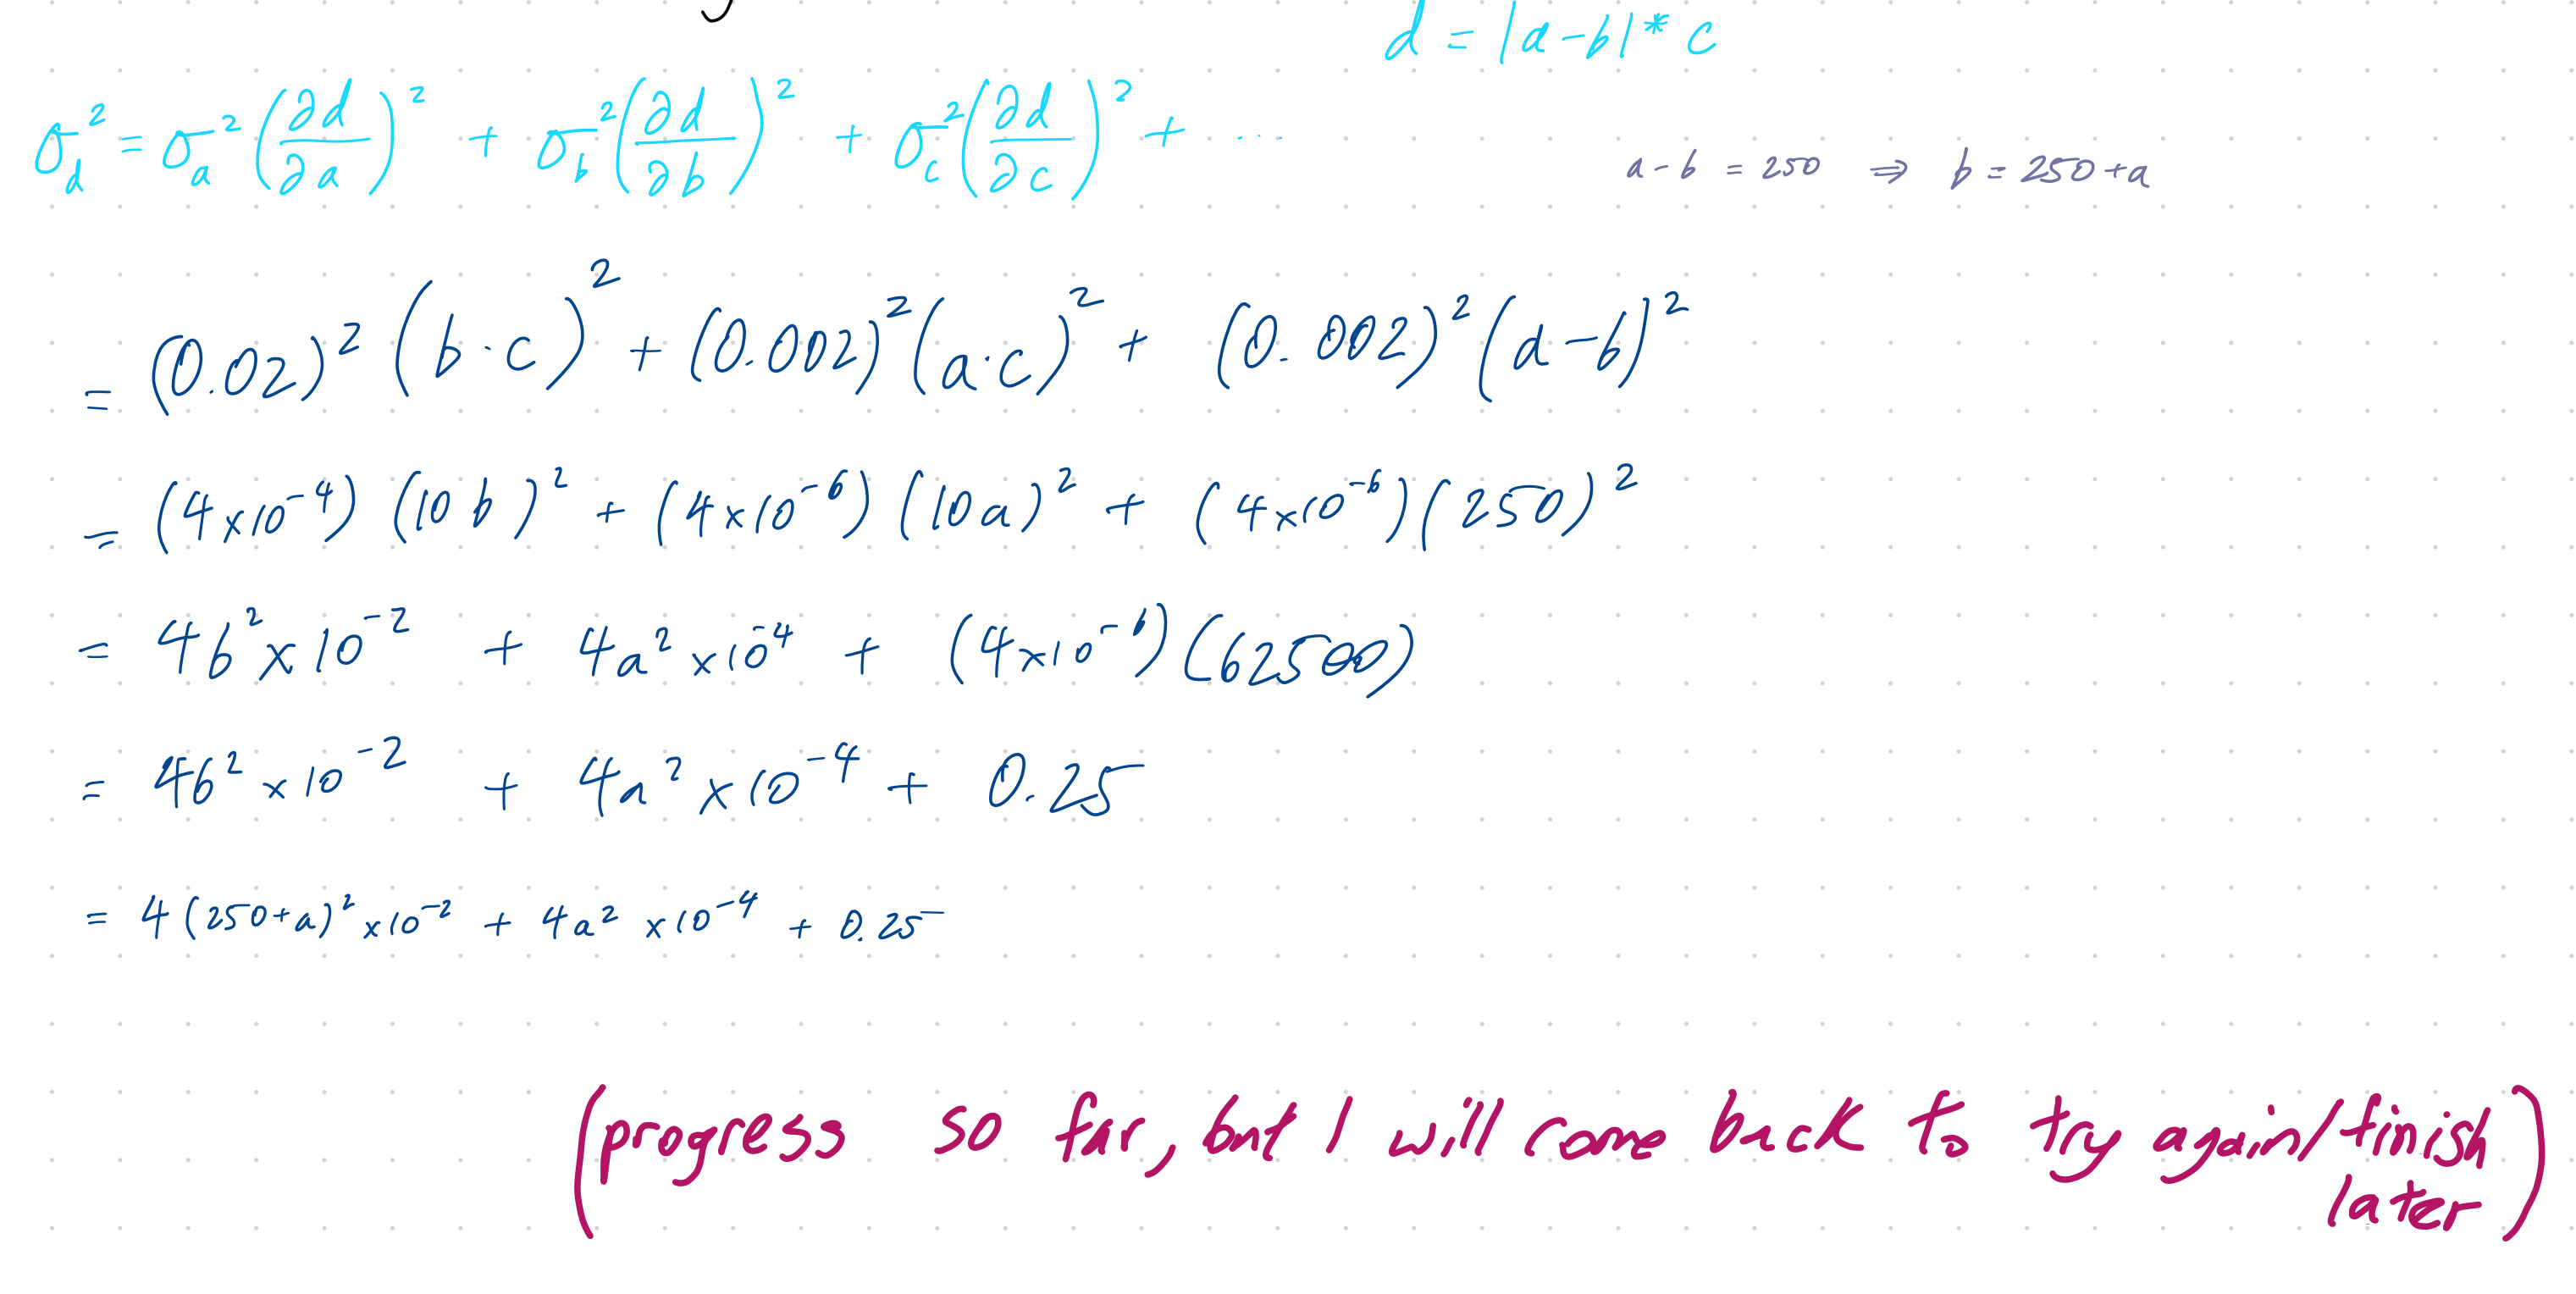 d = |a-b| * c
σ_d² = σ_a² (∂d/∂a)² + σ_b² (∂d/∂b)² + σ_c² (∂d/∂c)² + ...
a - b = 250 ⇒ b = 250 + a
= (0.02)² (b·c)² + (0.002)² (a·c)² + (0.002)² (a-b)²
= (4×10⁻⁴) (10b)² + (4×10⁻⁶) (10a)² + (4×10⁻⁶)(250)²
= 4b² × 10⁻² + 4a² × 10⁻⁴ + (4×10⁻⁶)(62500)
= 4b² × 10⁻² + 4a² × 10⁻⁴ + 0.25
= 4(250+a)² × 10⁻² + 4a² × 10⁻⁴ + 0.25
(progress so far, but I will come back to try again/finish
later)